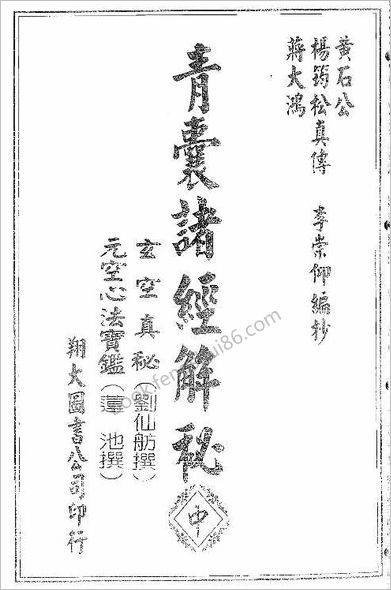 黄石公
楊筠松真傳　李崇仰編抄
蔣大鴻
青囊諸經解秘
中
玄空真秘（劉仙舫撰）
元空心法寶鑑（池撰）
翔大圖書公司印行
book.fengshui86.com